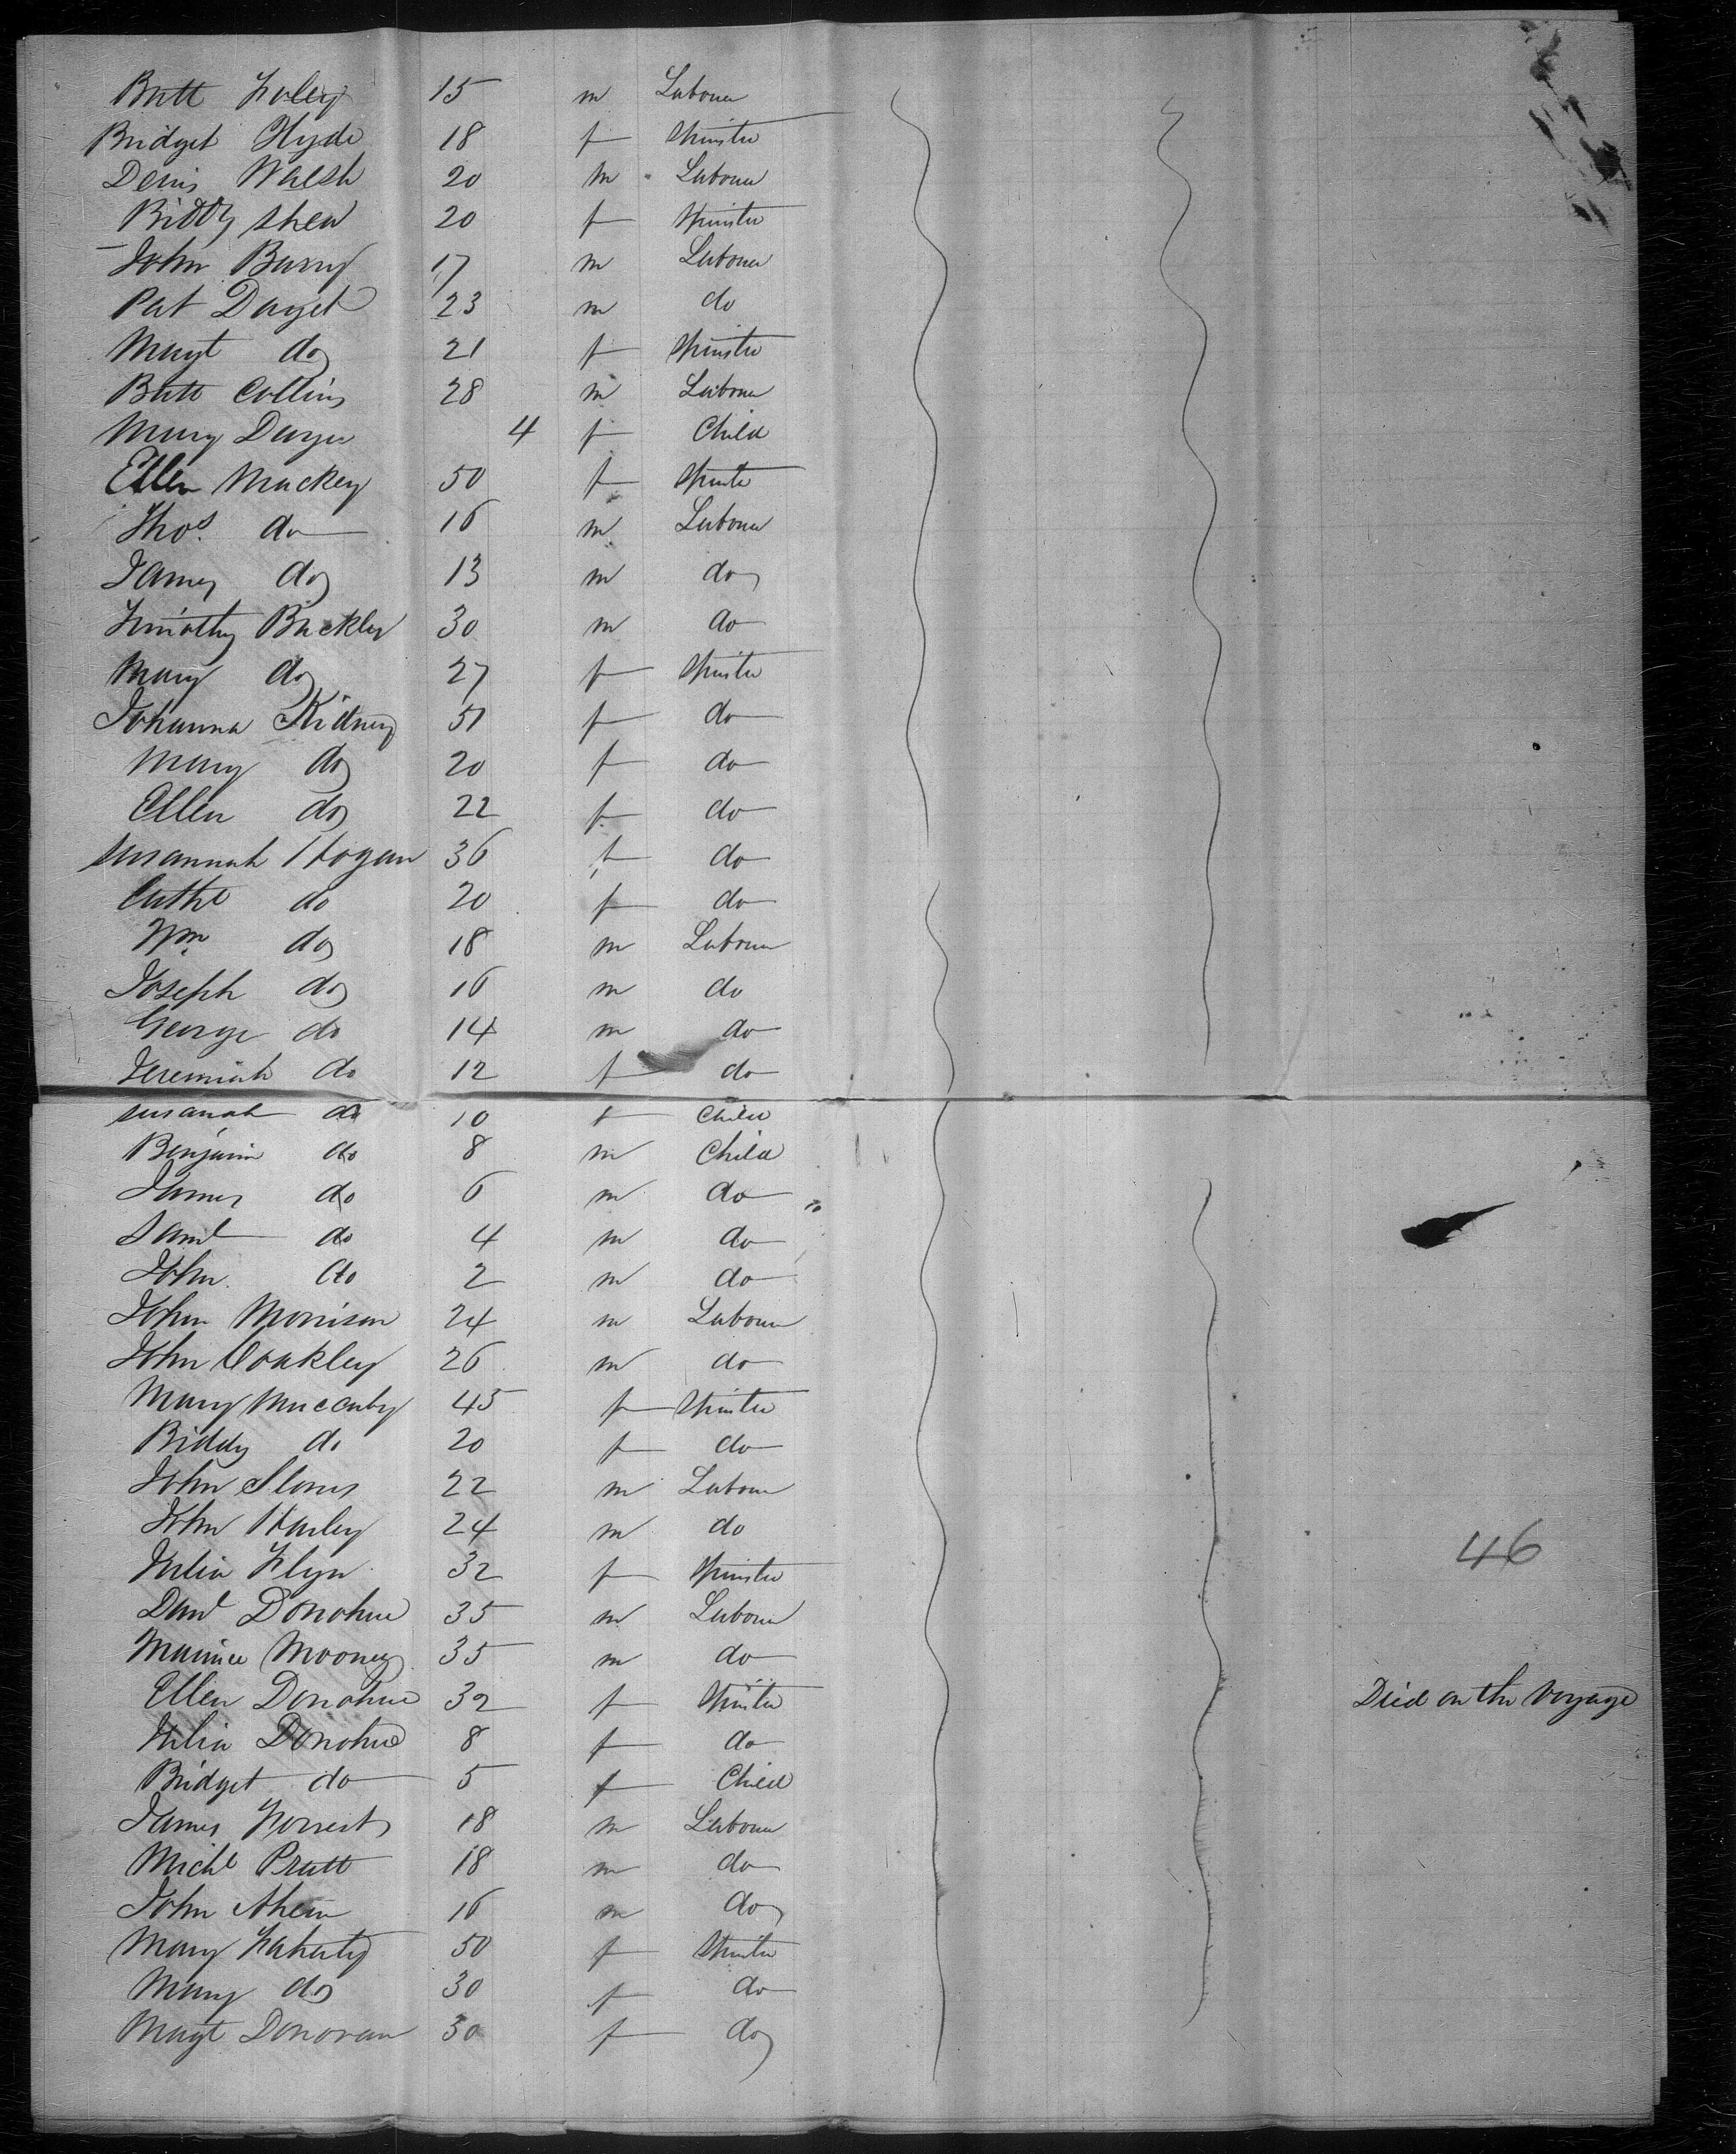 Batt Foley 15 m Labourer
Bridget Hyde 18 f Spinster
Denis Walsh 20 m Labourer
Biddy Shea 20 f Spinster
John Barry 17 m Labourer
Pat 23 m do
Magt do 21 f Spinster
Batt Collins 28 m Labourer
Mary 4 f Child
Ellen Mackey 50 f Spinster
Thos. do 16 m Labourer
James do 13 m do
Timothy Buckley 30 m do
Mary do 27 f Spinster
Johanna Kidney 51 f do
Mary do 20 f do
Ellen do 22 f do
Susannah Hogan 36 f do
Cathe do 20 f do
Wm. do 18 m Labourer
Joseph do 16 m do
George do 14 m do
Jeremiah do 12 f do
Susanah do 10 f Child
Benjamin do 8 m Child
James do 6 m do
Saml do 4 m do
John do 2 m do
John Morrison 24 m Labourer
John Coakley 26 m do
Mary 45 f Spinster
Biddy do 20 f do
John 22 m Labourer
John Hurley 24 m do
46
Julia Flyn 32 f Spinster
Danl Donohue 35 m Labourer
Maurice Mooney 35 m do
Ellen Donohue 32 f Spinster Died on the Voyage
Julia Donohue 8 f do
Bridget do 5 f Child
James Forrest 18 m Labourer
Michl Pratt 18 m do
John Ahern 16 m do
Mary Faherty 50 f Spinster
Mary do 30 f do
Magt Donovan 30 f do